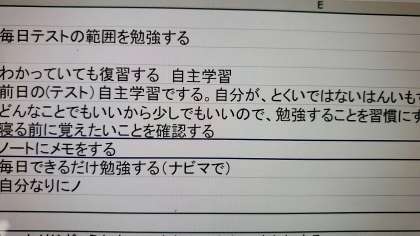 E
毎日テストの範囲を勉強する
わかっていても復習する　自主学習
前日の(テスト)自主学習でする。自分が、とくいではないはんいもて
どんなことでもいいから少しでもいいので、勉強することを習慣にす
寝る前に覚えたいことを確認する
ノートにメモをする
毎日できるだけ勉強する(ナビマで)
自分なりにノ